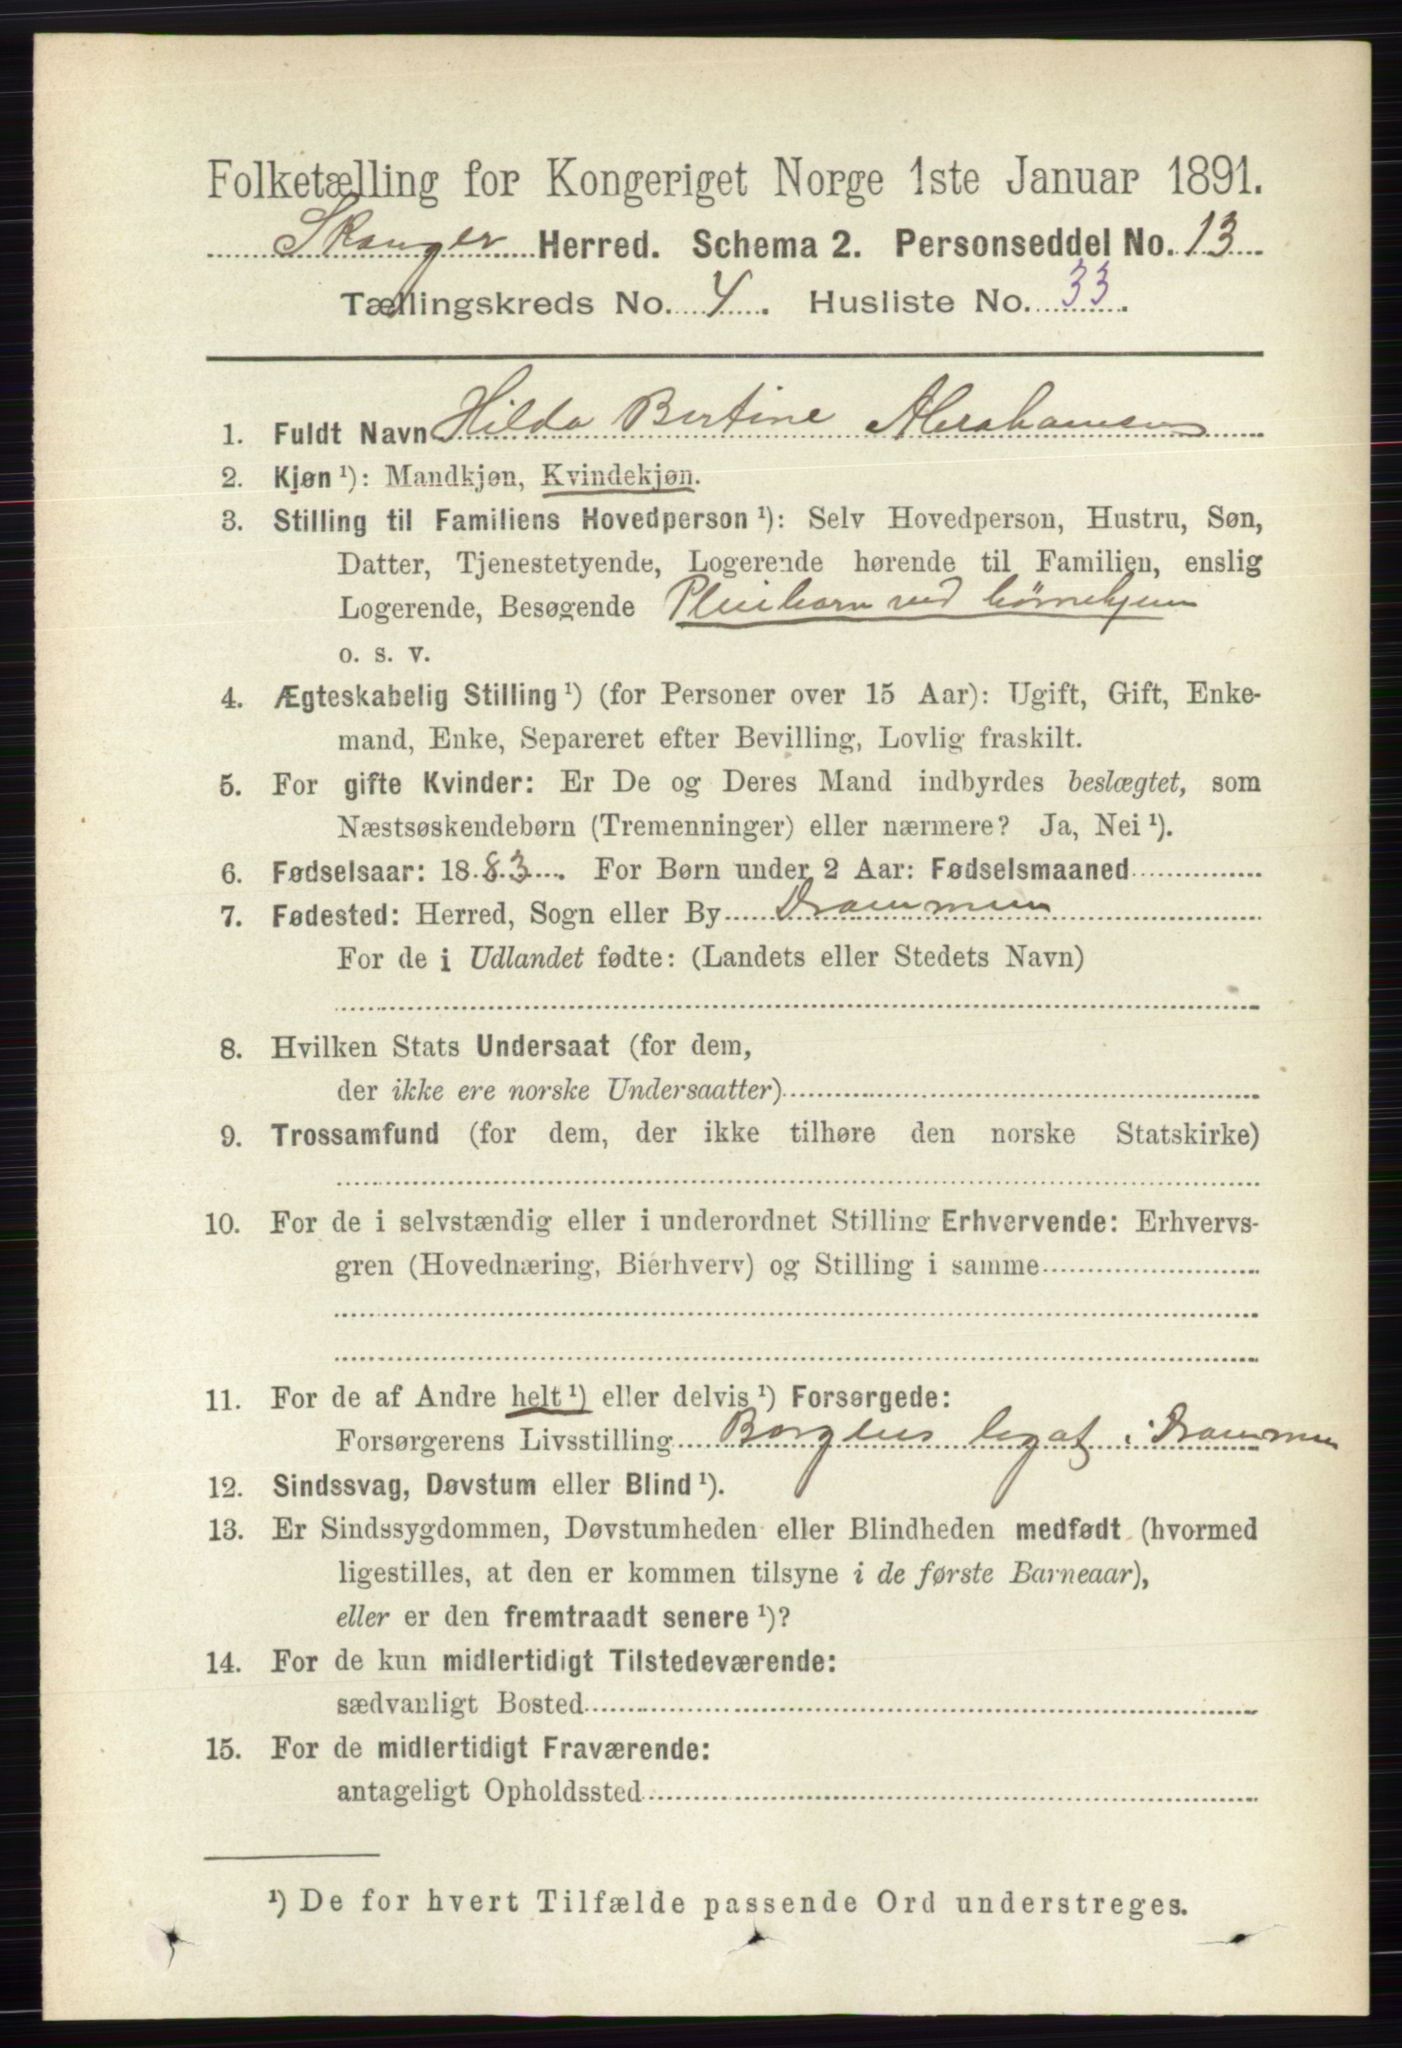 Folketælling for Kongeriget Norge 1ste Januar 1891.
Skouger Herred. Schema 2. Personseddel No. 13
Tællingskreds No. 4. Husliste No. 33.
1. Fuldt Navn Hilda Bertine Abrahamsen
2. Kjøn ¹): Mandkjøn, Kvindekjøn.
3. Stilling til Familiens Hovedperson ¹): Selv Hovedperson, Hustru, Søn,
Datter, Tjenestetyende, Logerende hørende til Familien, enslig
Logerende, Besøgende Pleiebarn ved børnehjem
o. s. v.
4. Ægteskabelig Stilling ¹) (for Personer over 15 Aar): Ugift, Gift, Enke-
mand, Enke, Separeret efter Bevilling, Lovlig fraskilt.
5. For gifte Kvinder: Er De og Deres Mand indbyrdes beslægtet, som
Næstsøskendebørn (Tremenninger) eller nærmere? Ja, Nei ¹).
6. Fødselsaar: 1883. For Børn under 2 Aar: Fødselsmaaned
7. Fødested: Herred, Sogn eller By Drammen
For de i Udlandet fødte: (Landets eller Stedets Navn)
8. Hvilken Stats Undersaat (for dem,
der ikke ere norske Undersaatter)
9. Trossamfund (for dem, der ikke tilhøre den norske Statskirke)
10. For de i selvstændig eller i underordnet Stilling Erhvervende: Erhvervs-
gren (Hovednæring, Bierhverv) og Stilling i samme
11. For de af Andre helt ¹) eller delvis ¹) Forsørgede:
Forsørgerens Livsstilling legat i Drammen
12. Sindssvag, Døvstum eller Blind ¹).
13. Er Sindssygdommen, Døvstumheden eller Blindheden medfødt (hvormed
ligestilles, at den er kommen tilsyne i de første Barneaar),
eller er den fremtraadt senere ¹)?
14. For de kun midlertidigt Tilstedeværende:
sædvanligt Bosted
15. For de midlertidigt Fraværende:
antageligt Opholdssted
¹) De for hvert Tilfælde passende Ord understreges.